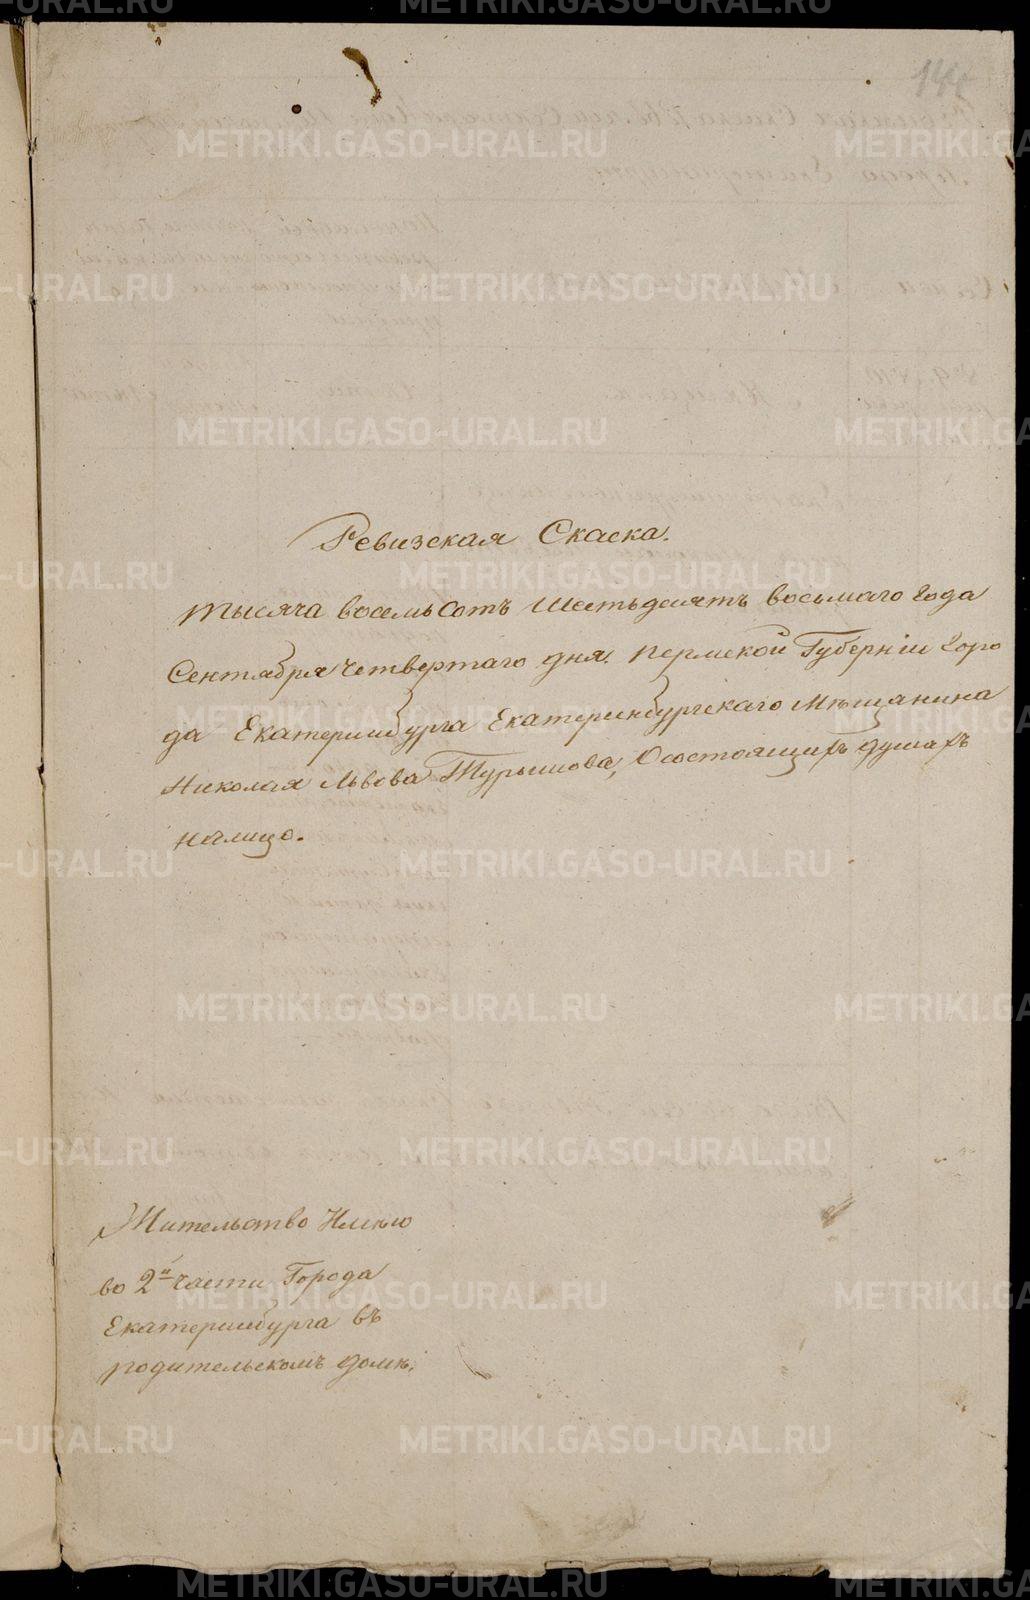 Ревизская Скаска.
тысяча восемьсотъ шестьдесятъ восьмаго года
Сентября четвертаго дня. Пермской Губерніи Горо
да Екатеринбурга Екатеринбургскаго Мѣщанина
Николая Львова Турышова, О состоящихъ душахъ
на лицо.
Жительство Имѣю
во 2й части Города
Екатеринбурга въ
родительскомъ домѣ.
METRIKI.GASO-URAL.RU